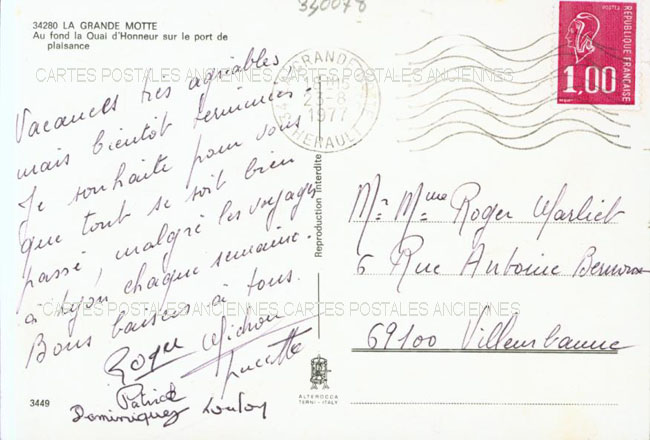 340078
34280 LA GRANDE MOTTE
Au fond la Quai d'Honneur sur le port de
plaisance
CARTES POSTALES ANCIENNES CARTES POSTALES ANCIENNES
Vacances très agréables,
mais bientôt terminées -
Je souhaite pour vous
que tout se soit bien
passé, malgré les voyages
à Lyon chaque semaine.
Bons baisers à tous.
Roger Michou
Lucette
Patrick
Dominique
Loulou
3449
GRANDE
23-8
1977
HERAULT
Reproduction Interdite
ALTEROCCA
TERNI - ITALY
POSTES
REPUBLIQUE FRANÇAISE
1,00
Mr Mme Roger Marliet
6 Rue Antoine
CARTES POSTALES ANCIENNES CARTES POSTALES ANCIENNES
69100 Villeurbanne